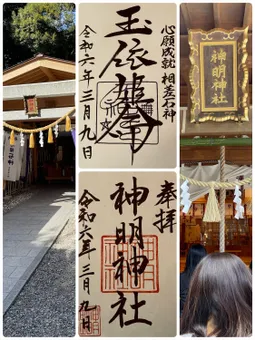 心願成就 相差石神
玉依姫命
令和六年三月九日
奉拝
神明神社
令和六年三月九日
神明神社